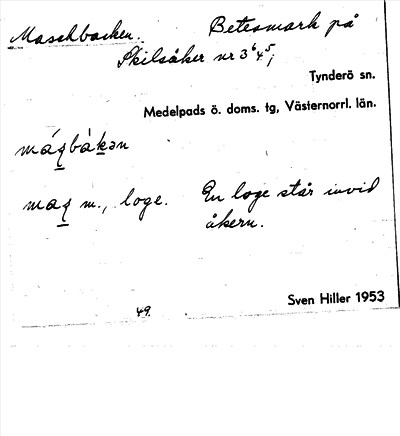 Maschbacken. Betesmark på
Skilsåker nr 3⁶4⁵;
Tynderö sn.
Medelpads ö. doms. tg, Västernorrl. län.
m., loge. En loge står invid
åkern.
Sven Hiller 1953
49.